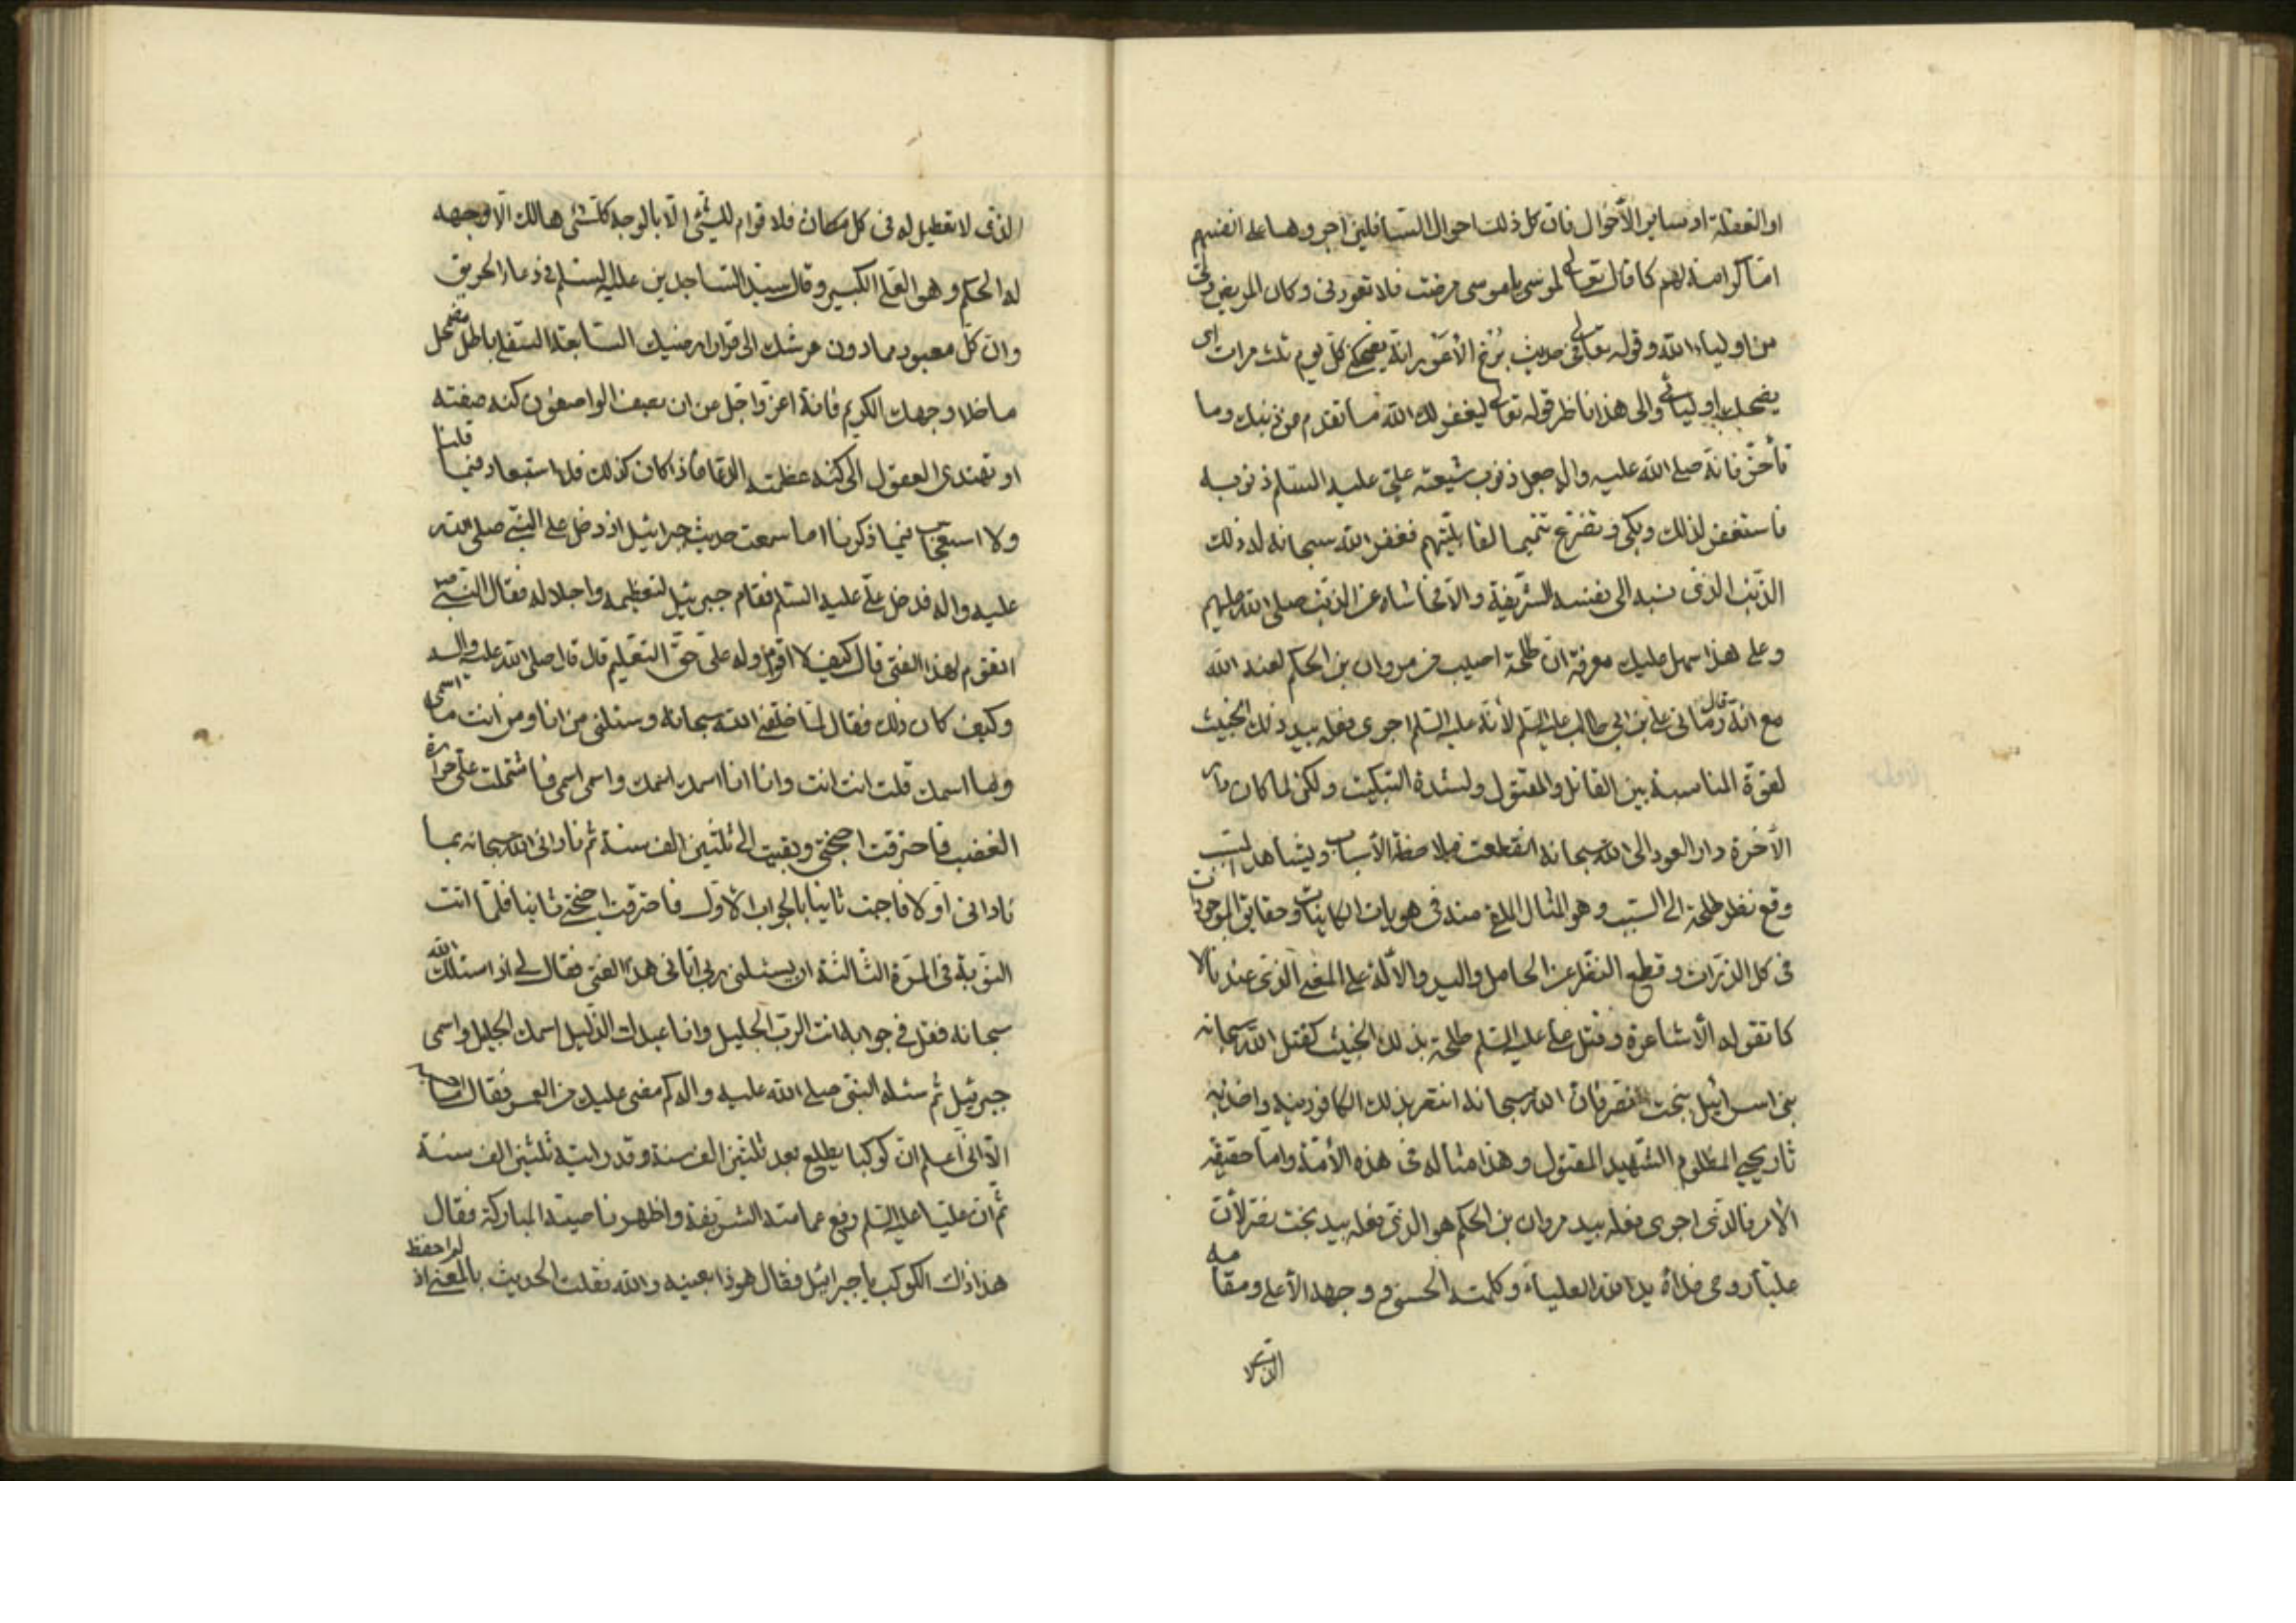 او الغفلة او سایر الأحوال فان کل ذلک احوال السافلین اجروها علی انفسهم
اما کرامة لهم کما قال تعالی لموسی یا موسی مرضت فلا تعودنی و کان المریض ولی
من اولیاء الله و قوله تعالی فی حدیث برخ الأسود انه یضحکنی کل یوم ثلث مرات ای
یضحک اولیائی و الی هذا ناظر قوله تعالی لیغفر لک الله ما تقدم من ذنبک و ما
تأخر فانه صلی الله علیه و اله جعل ذنوب شیعة علی علیه السلم ذنوبه
فاستغفر لذلک و بکی و تضرع تتمیما لقابلیتهم فغفر الله سبحانه له ذلک
الذنب الذی نسبه الی نفسه الشریفة و الا فحاشاه عن الذنب صلی الله علیهم
و علی هذا سهل علیک معرفة ان طلحة اصیب من مروان بن الحکم لعنه الله
مع انه قال رمانی علی بن ابی طالب علیه السلم لأنه علیه السلم اجری فعله بید ذلک الخبیث
لقوة المناسبة بین القاتل و المقتول و لشدة التبکیت و لکن لما کان دار
الآخرة دار العود الی الله سبحانه انقطعت ملاحظة الأسباب و یشاهد المسبب
وقع نظر طلحة الی السبب و هو المثال الملقی منه فی هویات الکاینات و حقایق الموجودات
فی کل الذرات و قطع النظر عن الحامل و الید و الالة علی المعنی الذی عندنا لا
کما تقوله الأشاعرة و قتل علی علیه السلم طلحة بذلک الخبیث کقتل الله سبحانه
بنی اسرائیل ببخت نصر فان الله سبحانه انتقم بذلک الکافر منهم و اخذ به
ثار یحیی المظلوم الشهید المقتول و هذا مثاله فی هذه الأمة و اما حقیقة
الأمر فالذی اجری فعله بید مروان بن الحکم هو الذی فعله بید بخت نصر لأن
علیا روحی فداه ید الله العلیاء و کلمته الحسنی و وجهه الأعلی و مقامه
الذی لا
الذی لا تعطیل له فی کل مکان فلا قوام للشیء الا بالوجه کل شیء هالک الا وجهه
له الحکم و هو العلی الکبیر و قال سید الساجدین علیه السلم فی دعاء الحریق
و ان کل معبود مما دون عرشک الی قرار ارضیک السابعة السفلی باطل مضمحل
ما خلا وجهک الکریم فانه اعز و اجل من ان یصف الواصفون کنه صفته
او تهتدی العقول الی کنه عظمته الدعا فاذا کان کذلک فلا استبعاد فیما قلنا
و لا استعجاب فیما ذکرنا اما سمعت حدیث جبرائیل اذ دخل علی النبی صلی الله
علیه و اله فدخل علی علیه السلم فقام جبرئیل لتعظیمه و اجلاله فقال النبی ص
اتقوم لهذا الفتی قال کیف لا اقوم و له علی حق التعلیم قال قال صلی الله علیه و اله
و کیف کان ذلک فقال لما خلقنی الله سبحانه و سئلنی من انا و من انت ما اسمی
و ما اسمک قلت انت انت و انا انا اسمک اسمک و اسمی اسمی فاشتملت علی حرارة
الغضب فاحترقت اجنحتی و بقیت الی ثلثین الف سنة ثم نادانی الله سبحانه بما
نادانی اولا فاجبت ثانیا بالجواب الأول فاحترقت اجنحتی ثانیا فلما اتت
النوبة فی المرة الثالثة ان یسئلنی ربی اتانی هذا الفتی فقال لی اذا سئلک الله
سبحانه فقل فی جوابه انت الرب الجلیل و انا عبدک الذلیل اسمک الجلیل و اسمی
جبرئیل ثم سئله النبی صلی الله علیه و اله کم مضی علیک من العمر فقال
الا انی اعلم ان کوکبا یطلع بعد ثلثین الف سنة و قد رایته ثلثین الف سنة
ثم ان علیا علیه السلم رفع عمامته الشریفة و اظهر ناصیته المبارکة فقال
هذا ذاک الکوکب یا جبرائیل فقال هو ذا بعینه و الله نقلت الحدیث بالمعنی اذ لم احفظ